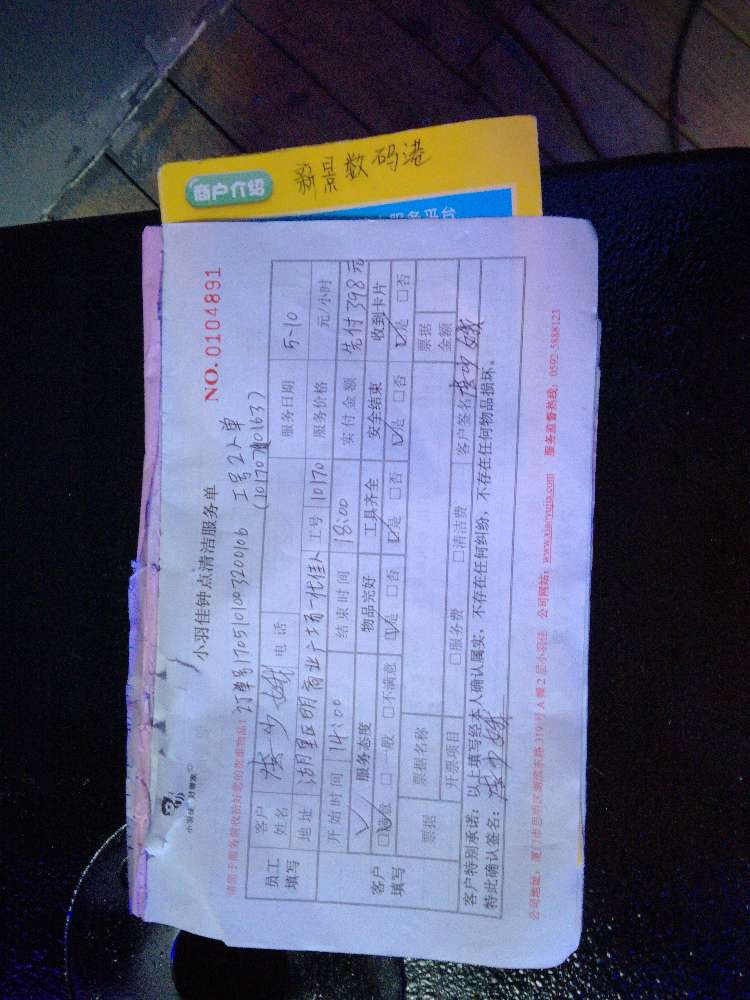 商户介绍
新景数码港
小羽佳 好管家
小羽佳钟点清洁服务单
NO. 0104891
订单号1705101003200106 工号2人单
(10170 10163)
员工填写 客户姓名 电话 服务日期 5-10
地址 湖里区明商业广场一代佳人 工号 10170 服务价格 元/小时
开始时间 14:00 结束时间 18:00 实付金额 先付398元
客户填写 服务态度 物品完好 工具齐全 安全结束 收到卡片
☑满意 □一般 □不满意 ☑是 □否 ☑是 □否 ☑是 □否 ☑是 □否
票据 票据名称 票据金额
开票项目 □服务费 □清洁费 客户签名
客户特别承诺:以上填写经本人确认属实,不存在任何纠纷,不存在任何物品损坏。
特此确认签名:
公司地址:厦门市思明区湖滨东路319号A幢2层小羽佳 公司网站:www.xiaoyujia.com 服务监督热线:0592-5888123